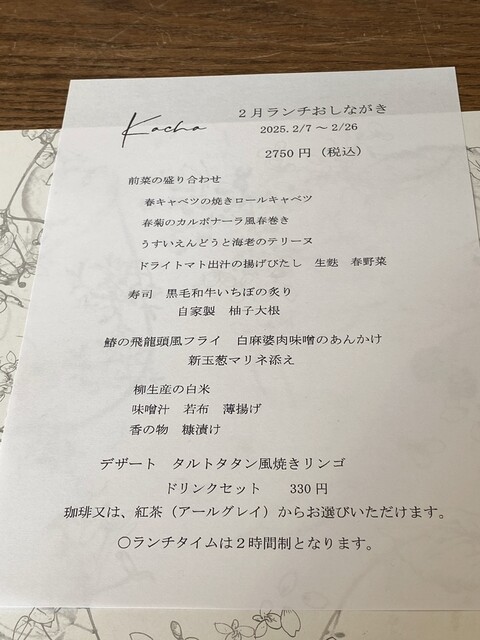 Kacha
2月ランチおしながき
2025.2/7～2/26
2750円（税込）
前菜の盛り合わせ
春キャベツの焼きロールキャベツ
春菊のカルボナーラ風春巻き
うすいえんどうと海老のテリーヌ
ドライトマト出汁の揚げびたし　生麩　春野菜
寿司　黒毛和牛いちぼの炙り
自家製　柚子大根
鰆の飛龍頭風フライ　白麻婆肉味噌のあんかけ
新玉葱マリネ添え
柳生産の白米
味噌汁　若布　薄揚げ
香の物　糠漬け
デザート　タルトタタン風焼きリンゴ
ドリンクセット　330円
珈琲又は、紅茶（アールグレイ）からお選びいただけます。
〇ランチタイムは２時間制となります。